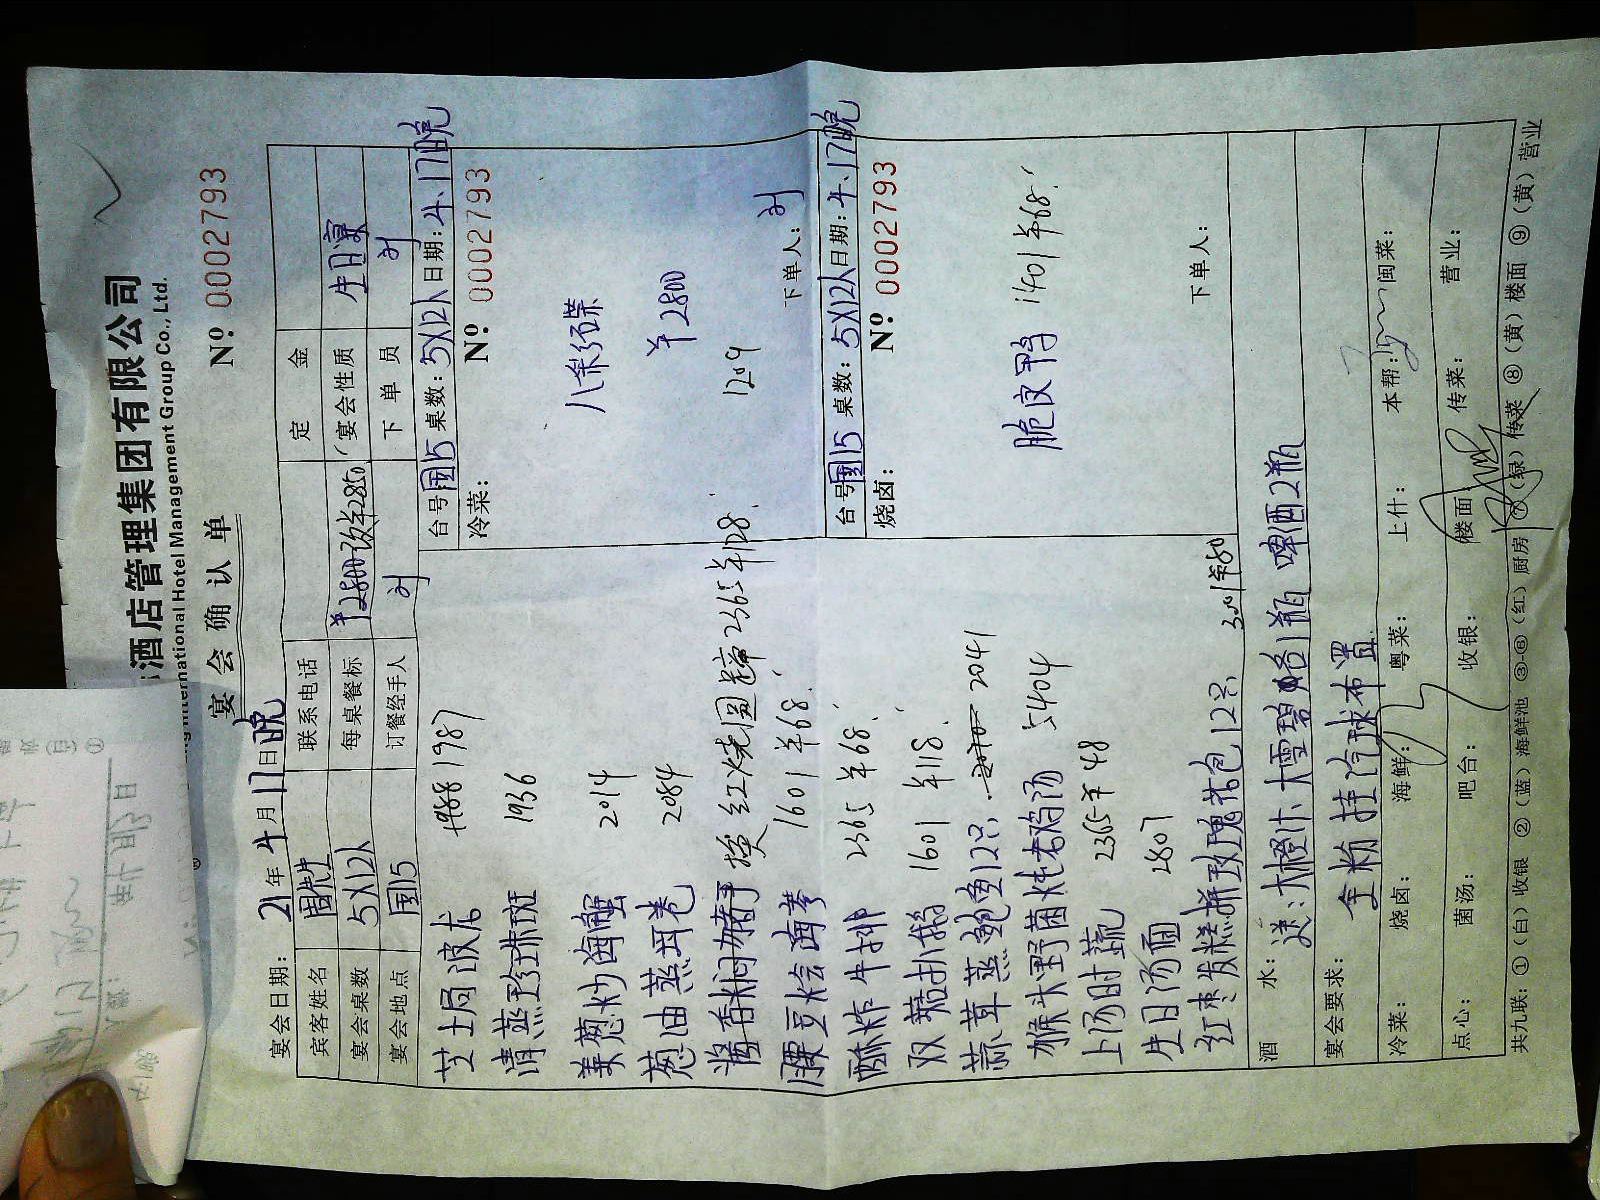 酒店管理集团有限公司
International Hotel Management Group Co., Ltd.
宴会确认单
№ 0002793
宴会日期: 21 年 4 月 17 日 晚
宾客姓名 联系电话 定金
宴会桌数 5X12人 每桌餐标 ¥2800改¥2850 宴会性质 生日宴
宴会地点 国15 订餐经手人 刘 下单员 刘
芝士焗波龙 1988 1987
清蒸珍珠斑 1936
姜葱炒海蟹 2014
葱油蒸茸卷 2084
酱香焖猪手 换红烧圆蹄 2365 ¥128!
腰豆烩海参 1601 ¥68!
酥炸牛排 2365 ¥68!
双菇扒翡 1601 ¥118!
蒜茸蒸鲍鱼12只 2041
猴头野菌炖老鸡汤 5404
上汤时蔬 2365 ¥48
生日汤面 2807
红枣发糕拼玫瑰花包12只 3001 ¥80
台号 国15 桌数: 5X12人 日期: 4.17晚
冷菜: № 0002793
八彩碟
¥2800
1209
下单人: 刘
台号 国15 桌数: 5X12人 日期: 4.17晚
烧卤: № 0002793
脆皮鸭 1401 ¥68!
下单人:
酒水: 送: 大橙汁 大雪碧各1瓶 啤酒2瓶
宴会要求: 全粉挂汽球布置
冷菜: 烧卤: 海鲜: 粤菜: 上什: 本帮: 闽菜:
点心: 菌汤: 吧台: 收银: 楼面 传菜: 营业:
共九联: ①(白)收银 ②(蓝)海鲜池 ③-⑥(红)厨房 ⑦(绿)传菜 ⑧(黄)楼面 ⑨(黄)营业